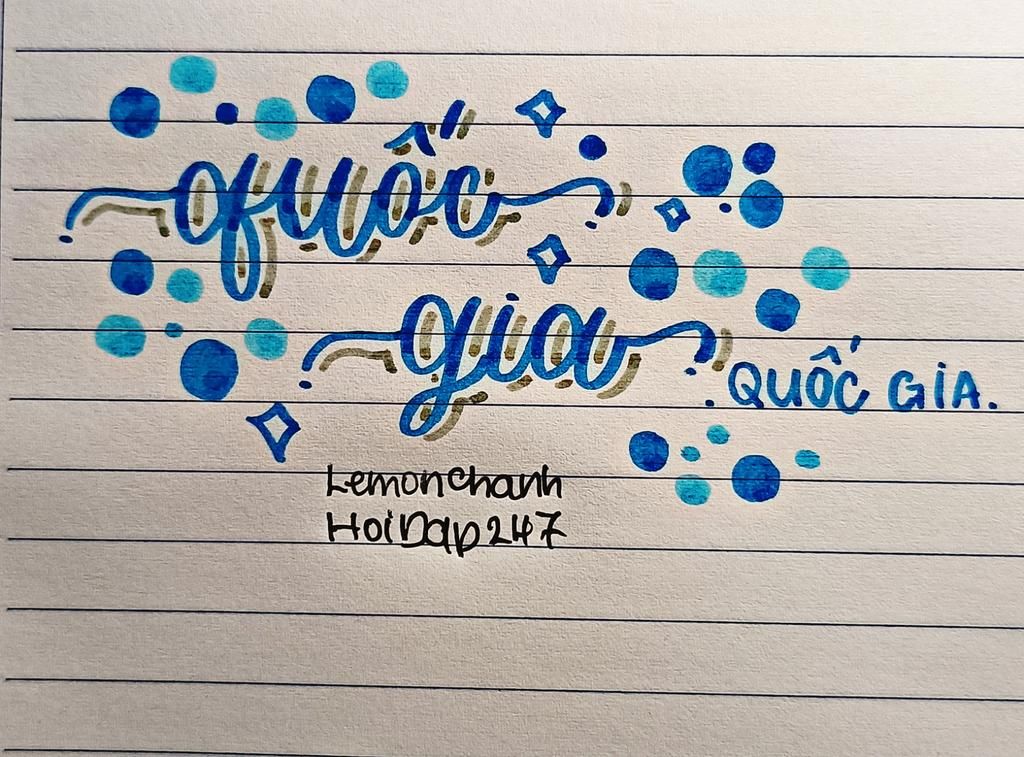 quốc
gia
QUỐC GiA.
Lemonchanh
HoiDap247